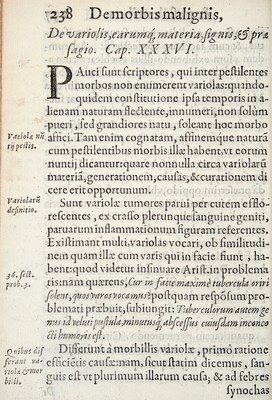 238 De morbis malignis,
De variolis, earumq́, materia, signis, & præ
sagio. Cap. XXXVI.
PAuci sunt scriptores, qui inter pestilentes
morbos non enumerent variolas: quando-
quidem constitutione ipsa temporis in a-
lienam naturam flectente, innumeri, non solùm
pueri, sed grandiores natu, soleant hoc morbo
affici. Tam enim cognatam, affinemque naturã
cum pestilentibus morbis illæ habent, vt eorum
nuntij dicantur: quare nonnulla circa variolarũ
materiã, generationem, causas, & curationem di
cere erit opportunum.
Variola nũ
tij pestis.
Sunt variolæ tumores parui per cutem efflo-
rescentes, ex crasso plerunque sanguine geniti,
paruarum inflammationum figuram referentes.
Existimant multi variolas vocari, ob similitudi-
nem quam illæ cum varis qui in facie fiunt, ha-
bent: quod videtur insinuare Arist. in problema
tis: nam quærens, Cur in facie maximè tubercula oriri
solent, quos varos vocamus? postquam respõsum pro-
blemati præbuit, subiungit: Tuberculorum autem ge-
nus id veluti pustula, minutusq́, abscessus cuiusdam inconco
cti humoris est.
Variolarũ
definitio.
36. sect.
prob. 3.
Differunt à morbillis variolæ, primò ratione
efficiẽtis causæ: nam, sicut statim dicemus, san-
guis est vt plurimum illarum causa, & ad febres
synochas
Quibus dif
ferant va-
riolæ & mor
billi.